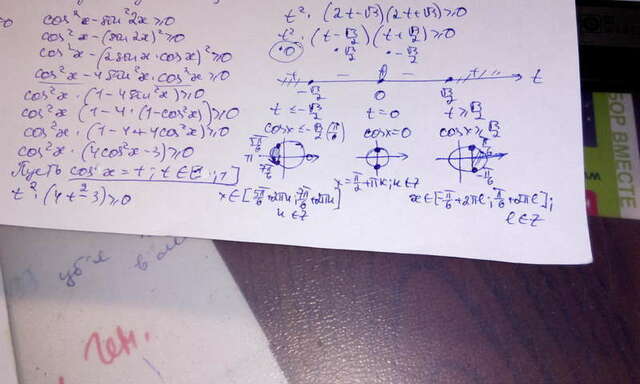 cos²x - sin²2x ≥ 0
cos²x - (sin2x)² ≥ 0
cos²x - (2sinx · cosx)² ≥ 0
cos²x - 4sin²x · cos²x ≥ 0
cos²x · (1 - 4sin²x) ≥ 0
cos²x · (1 - 4 · (1 - cos²x)) ≥ 0
cos²x · (1 - 4 + 4cos²x) ≥ 0
cos²x · (4cos²x - 3) ≥ 0
Пусть cosx = t; t ∈ [-1; 1]
t² · (4t² - 3) ≥ 0
t² · (2t - √3)(2t + √3) ≥ 0
t² · (t - √3/2)(t + √3/2) ≥ 0
• 0 • √3/2 • -√3/2
- - t
-√3/2 0 √3/2
t ≤ -√3/2 t = 0 t ≥ √3/2
cosx ≤ -√3/2 (π/6) cosx = 0 cosx ≥ √3/2
5π/6 π/6
π 0
7π/6 -π/6
x = π/2 + πk; k ∈ Z
x ∈ [5π/6 + 2πk; 7π/6 + 2πk]
k ∈ Z
x ∈ [-π/6 + 2πl; π/6 + 2πl];
l ∈ Z
БОР ВМЕСТЕ